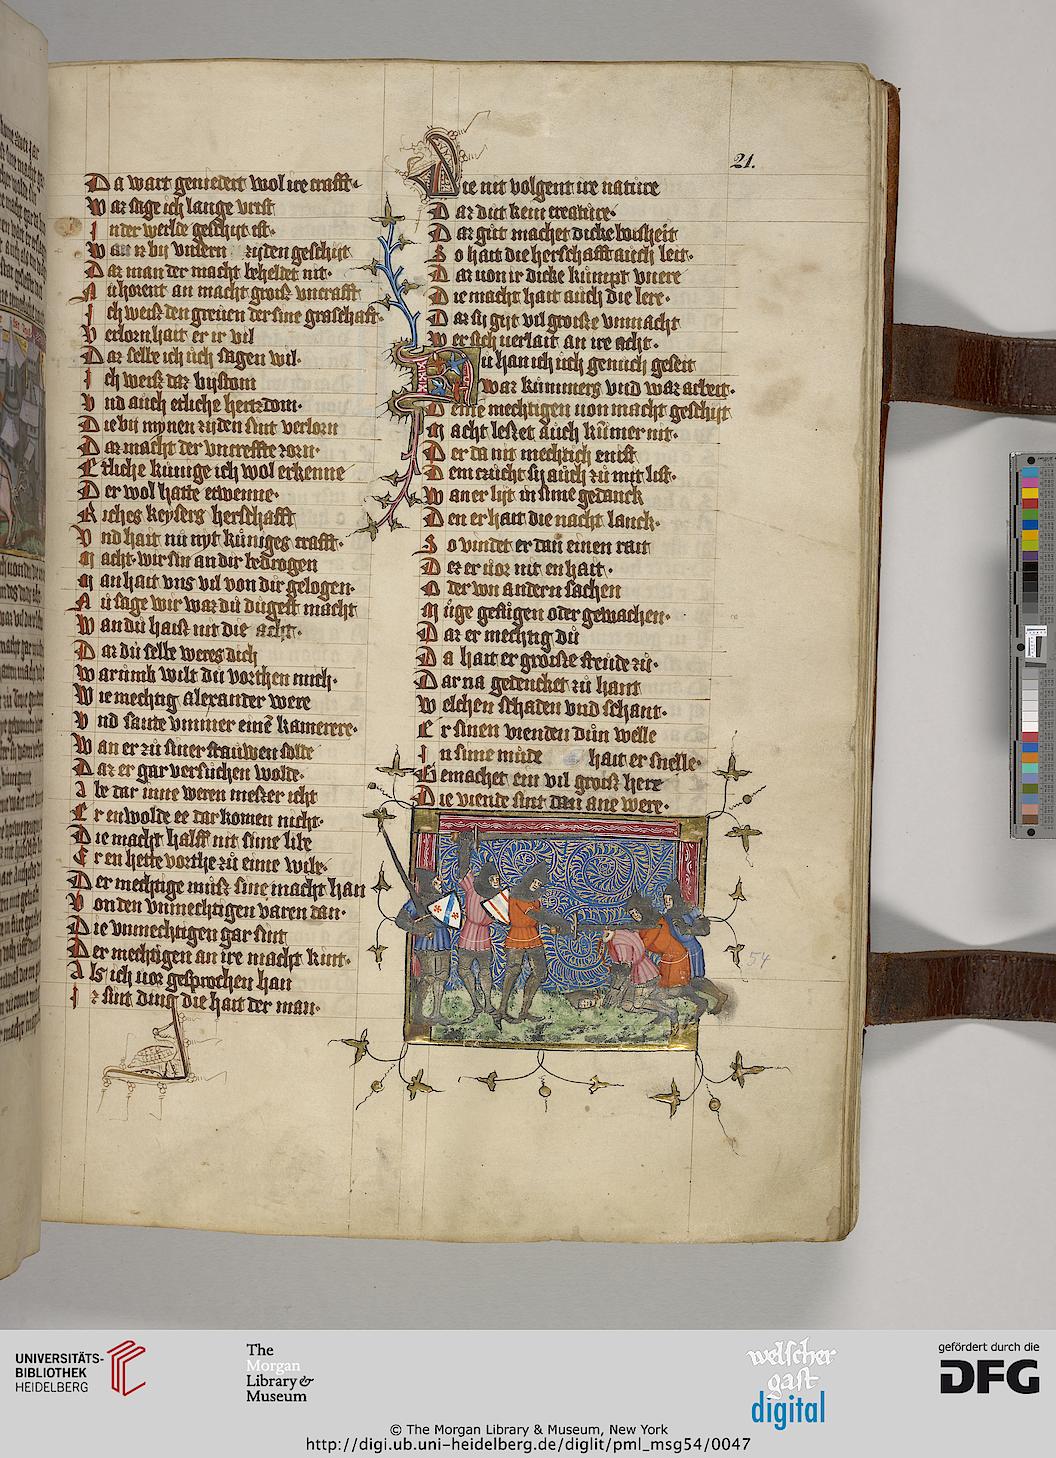 21.
Da wart genidert wol ire crafft.
Waz sage ich lange vrist
In der werlde geschiht ist.
Wan iz bij vnsern zijden geschiht
Daz man der macht beheldet nit.
Nu horent an macht groisz vncrafft
Ich weisz den greuen der sine graschaft.
Verlorn hait er ir vil
Daz selbe ich üch sagen wil.
Ich weisz daz bystom
Vnd auch etliche hertzdom.
Die bij mynen zijden sint verlorn
Daz macht der vntreffte zorn.
Etliche künige ich wol erkenne
Der wol hatte etwenne.
Riches keysers herschafft
Vnd hait nü nyt küniges crafft.
Macht wir sin an dir bedrogen
Man hait vns vil von dir gelogen.
Nu sage wir war dü dügest macht
Wan dü haist nit die acht.
Daz dü selbe weres dich
Warümb wilt du vorchen mich.
Wie mechtig Alexander were
Vnd sante vmmer eine kamerere.
Wan er zü siner frauwen solde
Daz er gar versüchen wolde.
Abe dar inne weren messer icht
Er en wolde ee dar komen nicht.
Die macht halff nit sime libe
Er en hette vorthe zü eime wibe.
Der mechtige müsz sine macht han
Von den vnmechtigen varen dan.
Die vnmechtigen gar sint
Der mechtigen an ire macht kint.
Als ich uor gesprochen han
Iz sint ding die hait der man.
Die nit volgent ire natüre
Daz düt kein creatüre.
Daz güt machet dicke bosheit
So hait die herschafft auch leit.
Daz uon ir dicke kümpt vnere
Die macht hait auch die lere.
Daz sij git vil groisze vnmacht
Wer sich uerlait an ire acht.
Nu han ich üch genüch geseit
Waz kümmers vnd waz arbeit.
Deme mechtigen uon macht geschiht
Macht lestet auch kümer nit.
Der da nit mechtich enist
Dem zzücht sij auch zü mit list.
Wan er lijt in sime gedanck
Den er hait die nacht lanck.
So vindet er dan einen rait
Dez er uor nit en hait.
Oder von andern sachen
Müge gestigen oder gewachen.
Daz er mechtig dü
Da hait er groisze freüde zü.
Dar na gedencket zü hant
Welchen schaden vnd schant.
Er sinen vienden dün welle
In sime müde hait er snelle.
Gemachet ein vil groisz here
Die viende sint dan ane were.
54
UNIVERSITÄTS-
BIBLIOTHEK
HEIDELBERG
The
Morgan
Library &
Museum
welscher
gast
digital
gefördert durch die
DFG
© The Morgan Library & Museum, New York
http://digi.ub.uni-heidelberg.de/diglit/pml_msg54/0047